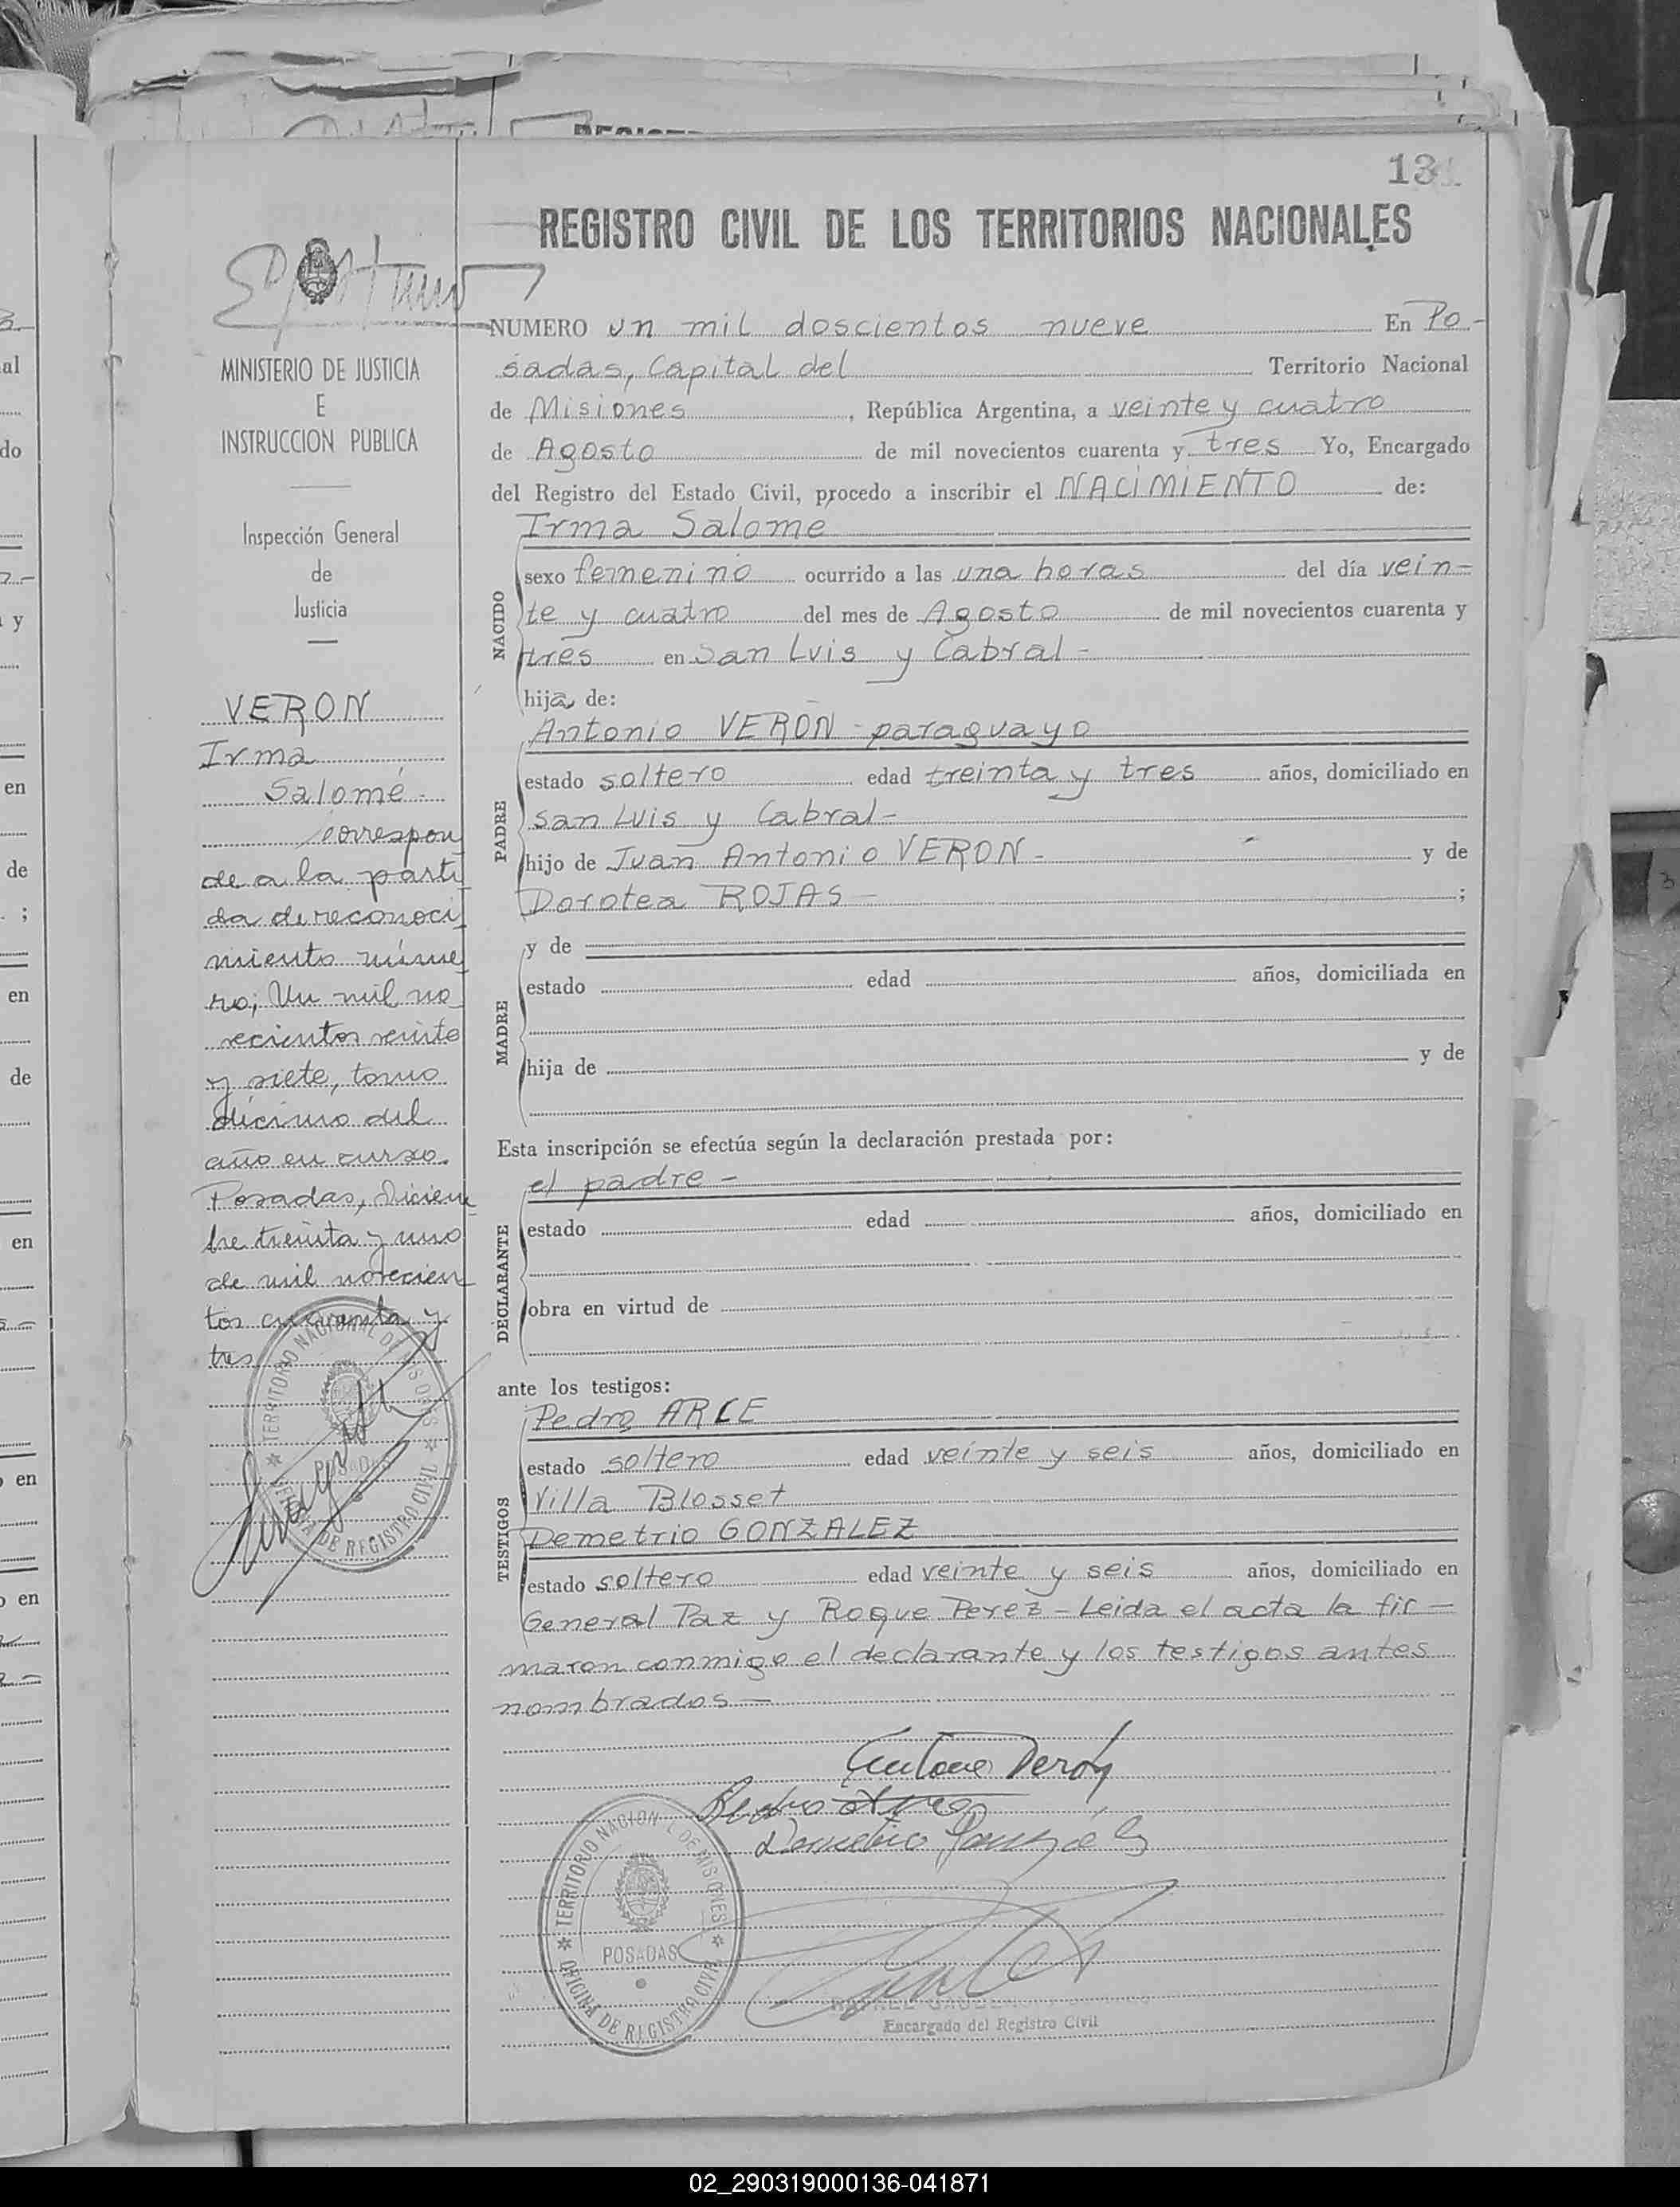 131
REGISTRO CIVIL DE LOS TERRITORIOS NACIONALES
MINISTERIO DE JUSTICIA
E
INSTRUCCION PUBLICA
Inspección General
de
Justicia
VERON
Irma
Salomé -
correspon
de a la parti
da de reconoci
miento núme
ro; Un mil no
vecientos veinte
y siete, tomo
décimo del
año en curso.
Posadas, Diciem
bre treinta y uno
de mil novecien
tos cuarenta y
tres
TERRITORIO NACIONAL DE MISIONES
POSADAS
OFICINA DE REGISTRO CIVIL
NUMERO un mil doscientos nueve En Po-
sadas, Capital del Territorio Nacional
de Misiones, República Argentina, a veinte y cuatro
de Agosto de mil novecientos cuarenta y tres Yo, Encargado
del Registro del Estado Civil, procedo a inscribir el NACIMIENTO de:
NACIDO
Irma Salome
sexo femenino ocurrido a las una horas del día vein-
te y cuatro del mes de Agosto de mil novecientos cuarenta y
tres en San Luis y Cabral -
hija de:
PADRE
Antonio VERON - paraguayo
estado soltero edad treinta y tres años, domiciliado en
San Luis y Cabral -
hijo de Juan Antonio VERON - y de
Dorotea ROJAS - ;
MADRE
y de
estado edad años, domiciliada en
hija de y de
Esta inscripción se efectúa según la declaración prestada por:
DECLARANTE
el padre -
estado edad años, domiciliado en
obra en virtud de
ante los testigos:
TESTIGOS
Pedro ARCE
estado soltero edad veinte y seis años, domiciliado en
Villa Blosset
Demetrio GONZALEZ
estado soltero edad veinte y seis años, domiciliado en
General Paz y Roque Perez - Leida el acta la fir -
maron conmigo el declarante y los testigos antes
nombrados -
Antonio Verón
Pedro Arce
Demetrio González
TERRITORIO NACIONAL DE MISIONES
POSADAS
OFICINA DE REGISTRO CIVIL
Encargado del Registro Civil
al
do
y
en
de
;
en
de
en
en
en
02_290319000136-041871